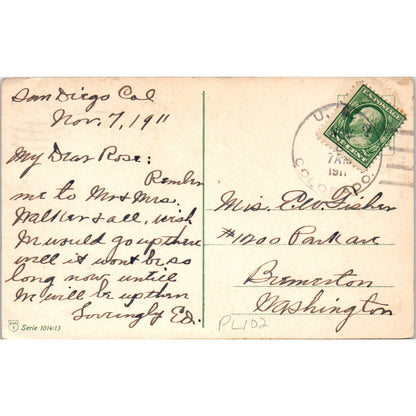 San Diego Cal
Nov. 7, 1911
My Dear Rose:
Rember
me to Mr & Mrs.
Walker & all, wish
we would go up there
well it wont be so
long now untill
we will be up then
Lovringly Ed.
Serie 1014:13
U.
7 AM
1911
COLO P.O.
Mis. E.W. Fisher
#1200 Park ave
Bremerton
Washington
PL102